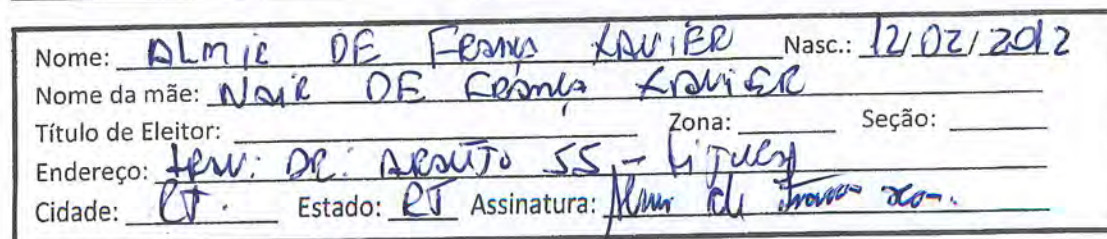 Nome: ALMIR DE FRANÇA XAVIER Nasc.: 12/02/2012
Nome da mãe: NAIR DE FRANÇA XAVIER
Título de Eleitor: Zona: Seção:
Endereço: TRAV: DR: ARAUJO 55 -
Cidade: RJ. Estado: RJ Assinatura: Almir de